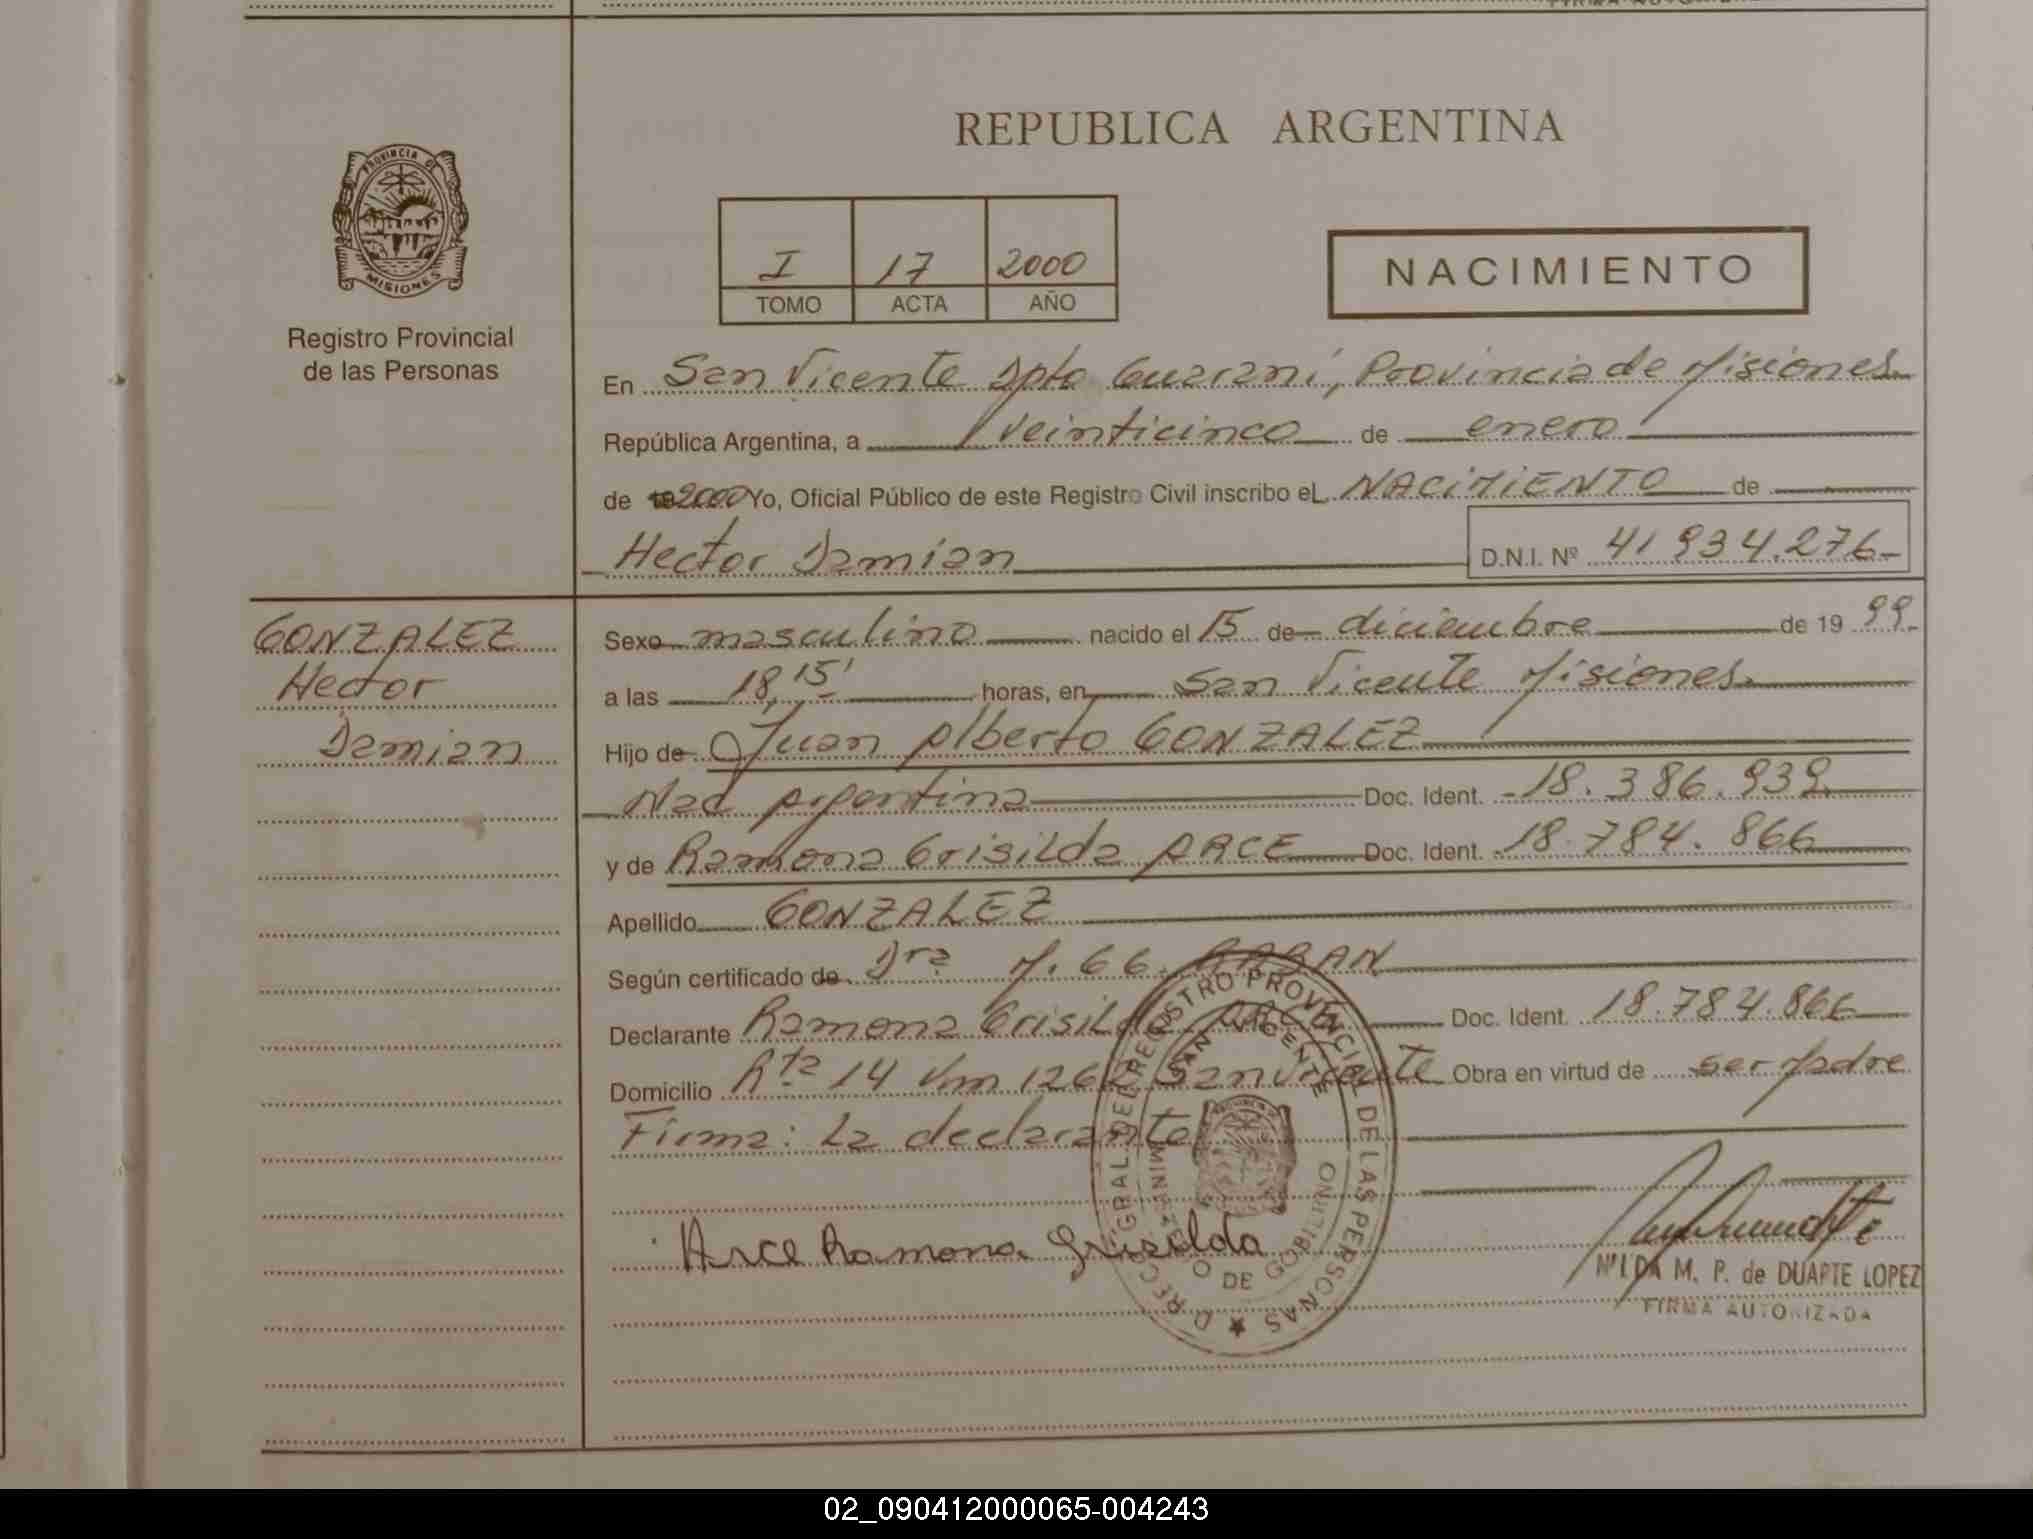 REPUBLICA ARGENTINA
PROVINCIA DE
MISIONES
Registro Provincial
de las Personas
I 17 2000
TOMO ACTA AÑO
NACIMIENTO
En San Vicente Dpto Guarani, Provincia de Misiones
República Argentina, a veinticinco de enero
de 2000 Yo, Oficial Público de este Registro Civil inscribo eL NACIMIENTO de
Hector Damian D.N.I. Nº 41.934.276
GONZALEZ
Hector
Damian
Sexo masculino nacido el 15 de diciembre de 19 99
a las 18,15' horas, en San Vicente Misiones
Hijo de Juan Alberto GONZALEZ
Nac Argentina Doc. Ident. 18.386.939
y de Ramona Grisilda ARCE Doc. Ident. 18.784.866
Apellido GONZALEZ
Según certificado de Dra M. 66.
Declarante Ramona Grisilda ARCE Doc. Ident. 18.784.866
Domicilio Rta 14 km 1262 San Vicente Obra en virtud de ser Madre
Firma: La declarante
Arce Ramona Griselda
DIRECC. GRAL DEL REGISTRO PROVINCIAL DE LAS PERSONAS
SAN VICENTE
DE GOBIERNO
NILDA M. P. de DUARTE LOPEZ
FIRMA AUTORIZADA
02_090412000065-004243